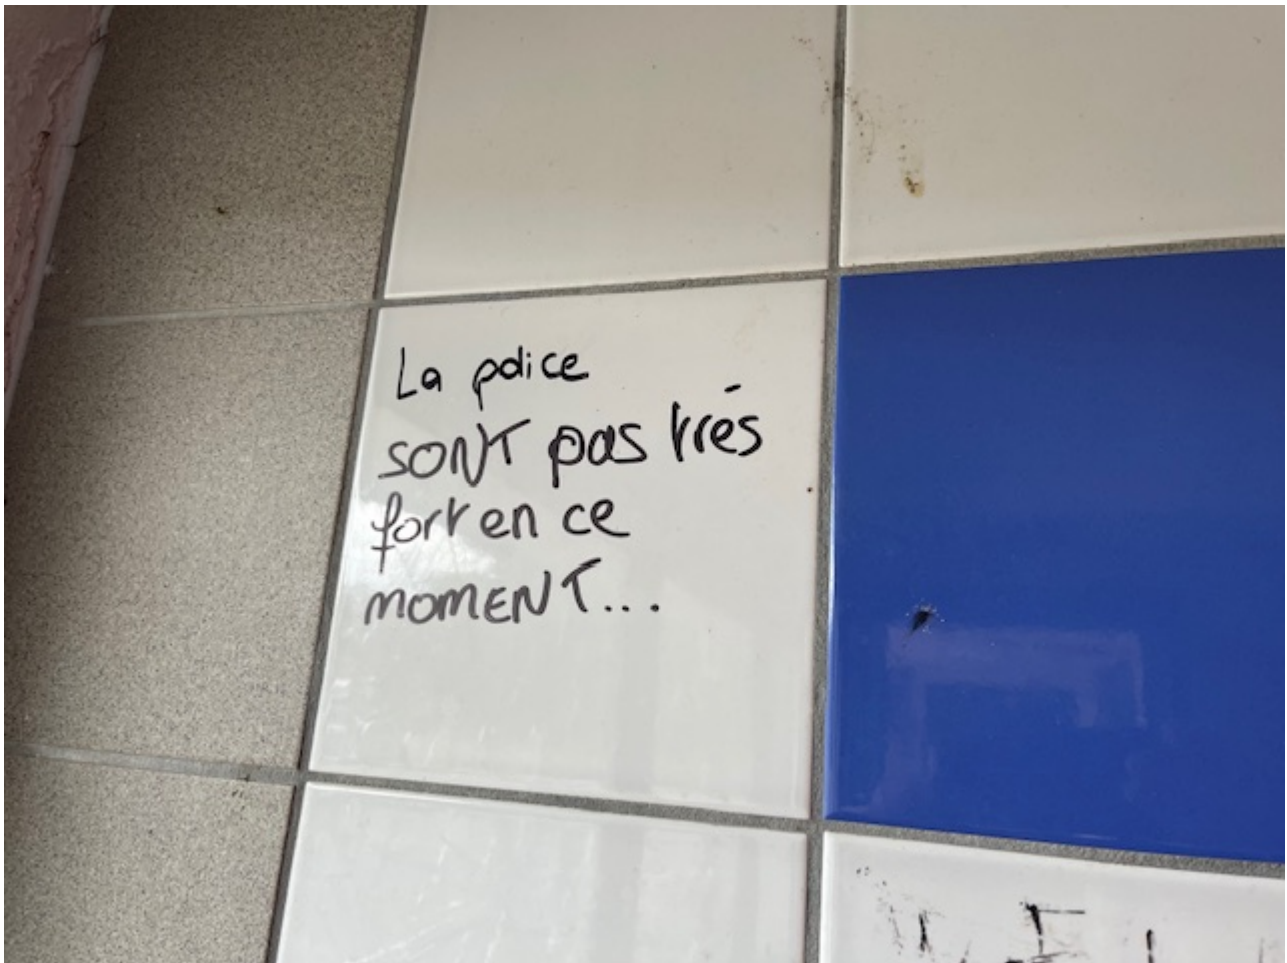 La police
SONT pas trés
fort en ce
MOMENT...